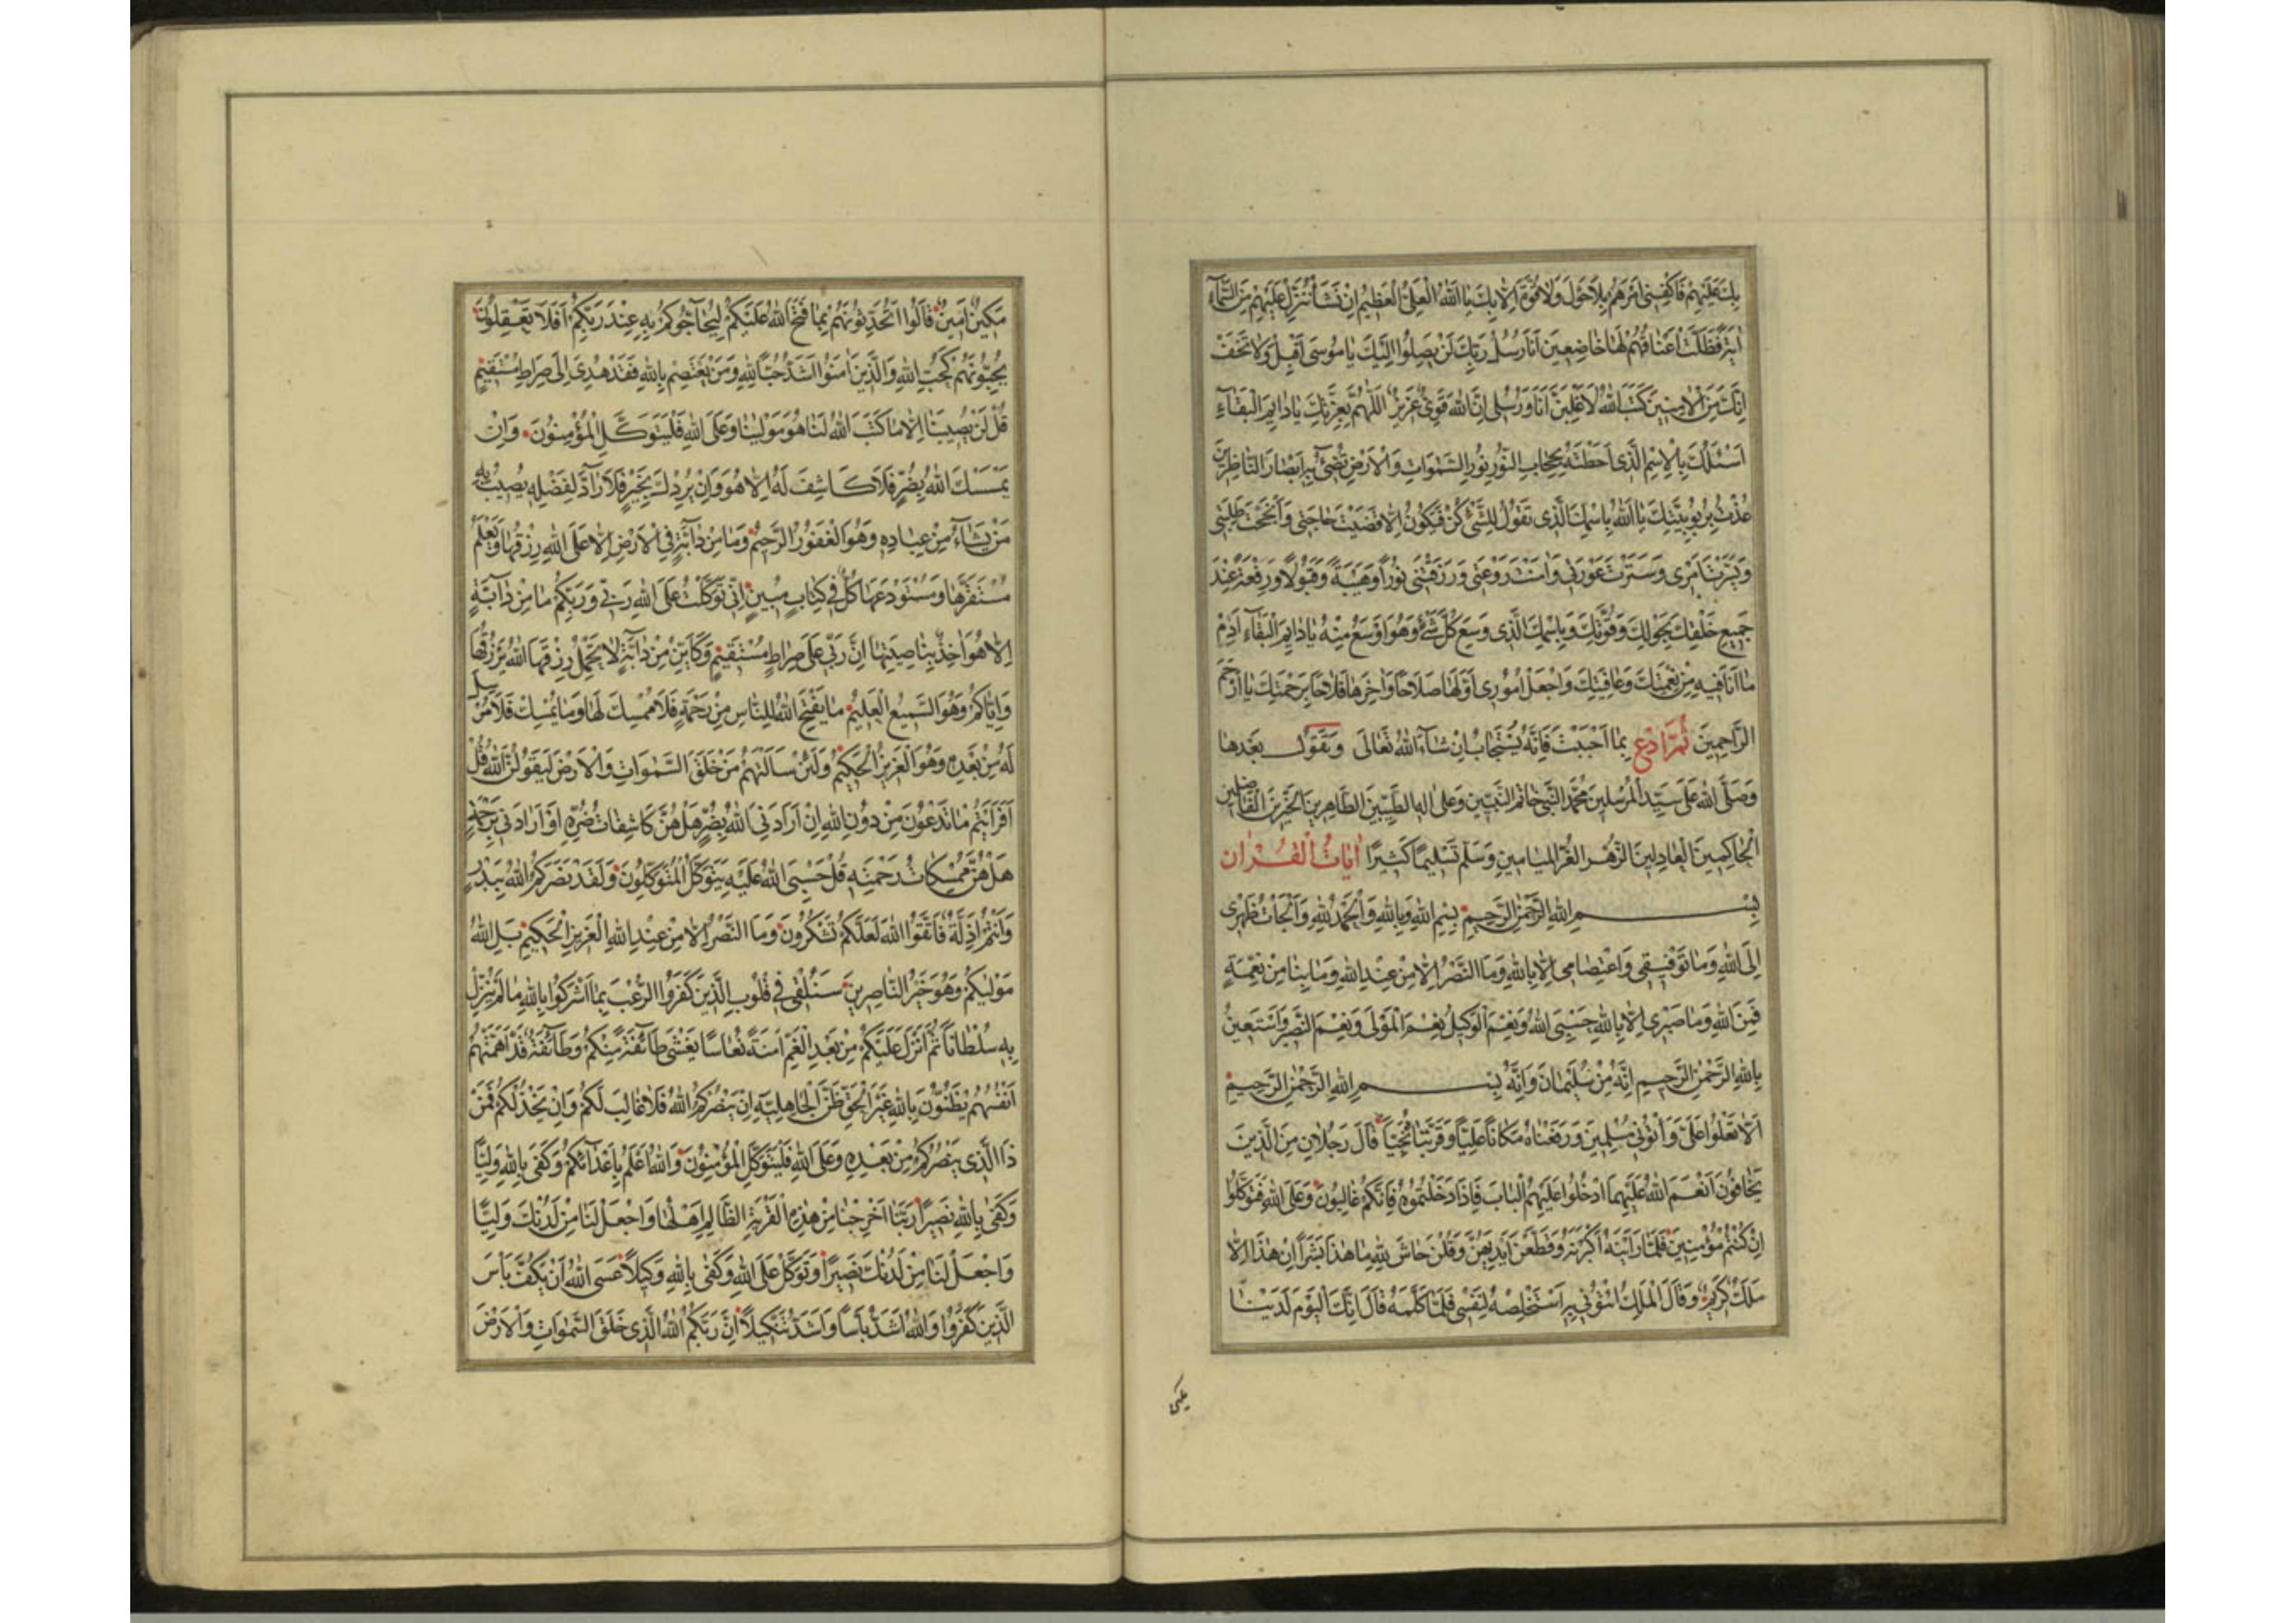 بِكَ عَلَيْهِمْ فَاكْفِنِي أَمْرَهُمْ بِلَا حَوْلَ وَلَا قُوَّةَ إِلَّا بِكَ يَا اَللّٰهُ الْعَلِيُّ الْعَظِيمُ إِنْ نَشَأْ نُنَزِّلْ عَلَيْهِمْ مِنَ السَّمَآءِ
اٰيَةً فَظَلَّتْ أَعْنَاقُهُمْ لَهَا خَاضِعِينَ اَنَا رُسُلُ رَبِّكَ لَنْ يَصِلُوا اِلَيْكَ يَا مُوسَى اَقْبِلْ وَلَا تَخَفْ
اِنَّكَ مِنَ الْاٰمِنِينَ كَتَبَ اللّٰهُ لَاَغْلِبَنَّ اَنَا وَرُسُلِي اِنَّ اللّٰهَ قَوِيٌّ عَزِيزٌ اَللّٰهُمَّ بِعِزَّتِكَ يَا دَايِمَ الْبَقَآءِ
اَسْئَلُكَ بِالْاِسْمِ الَّذِي اَحَطْتَهُ بِحِجَابِ النُّورِ نُورِ السَّمٰوَاتِ وَالْاَرْضِ تُضِئُ بِهِ اَبْصَارَ النَّاظِرِينَ
عُذْتُ بِرُبُوبِيَّتِكَ يَا اَللّٰهُ بِاسْمِكَ الَّذِي تَقُولُ لِلشَّئِ كُنْ فَيَكُونُ اِلَّا قَضَيْتَ حَاجَتِي وَاَنْجَحْتَ طَلِبَتِي
وَيَسَّرْتَ اَمْرِي وَسَتَرْتَ عَوْرَتِي وَاٰمَنْتَ رَوْعَتِي وَرَزَقْتَنِي نُوراً وَهَيْبَةً وَقَبُولًا وَرِفْعَةً عِنْدَ
جَمِيعِ خَلْقِكَ بِحَوْلِكَ وَقُوَّتِكَ وَبِاسْمِكَ الَّذِي وَسِعَ كُلَّ شَئٍ وَهُوَ اَوْسَعُ مِنْهُ يَا دَايِمَ الْبَقَآءِ اَدِمْ
مَا اَنَا فِيهِ مِنْ نِعْمَتِكَ وَعَافِيَتِكَ وَاجْعَلْ اُمُورِي اَوَّلَهَا صَلَاحاً وَاٰخِرَهَا فَلَاحاً بِرَحْمَتِكَ يَا اَرْحَمَ
الرَّاحِمِينَ ثُمَّ ادْعُ بِمَا اَحْبَبْتَ فَاِنَّهُ يُسْتَجَابُ اِنْ شَآءَ اللّٰهُ تَعَالَى وَيَقُولُ بَعْدَهَا
وَصَلَّى اللّٰهُ عَلَى سَيِّدِ الْمُرْسَلِينَ مُحَمَّدٍ النَّبِيِّ خَاتَمِ النَّبِيِّينَ وَعَلَى اٰلِهِ الطَّيِّبِينَ الطَّاهِرِينَ الْخَيِّرِينَ الْفَاضِلِينَ
الْحَاكِمِينَ الْعَادِلِينَ الزُّهْرِ الْغُرِّ الْمَيَامِينِ وَسَلَّمَ تَسْلِيماً كَثِيرًا اٰيَاتُ الْقُرْاٰن
بِسْمِ اللّٰهِ الرَّحْمٰنِ الرَّحِيمِ بِسْمِ اللّٰهِ وَبِاللّٰهِ وَالْحَمْدُ لِلّٰهِ وَاَلْجَأْتُ ظَهْرِي
اِلَى اللّٰهِ وَمَا تَوْفِيقِي وَاعْتِصَامِي اِلَّا بِاللّٰهِ وَمَا النَّصْرُ اِلَّا مِنْ عِنْدِ اللّٰهِ وَمَا بِنَا مِنْ نِعْمَةٍ
فَمِنَ اللّٰهِ وَمَا صَبْرِي اِلَّا بِاللّٰهِ حَسْبِيَ اللّٰهُ وَنِعْمَ الْوَكِيلُ نِعْمَ الْمَوْلَى وَنِعْمَ النَّصِيرُ وَاَسْتَعِينُ
بِاللّٰهِ الرَّحْمٰنِ الرَّحِيمِ اِنَّهُ مِنْ سُلَيْمَانَ وَاِنَّهُ بِسْمِ اللّٰهِ الرَّحْمٰنِ الرَّحِيمِ
اَلَّا تَعْلُوا عَلَيَّ وَأْتُونِي مُسْلِمِينَ وَرَفَعْنَاهُ مَكَاناً عَلِيًّا وَقَرَّبْنَاهُ نَجِيّاً قَالَ رَجُلَانِ مِنَ الَّذِينَ
يَخَافُونَ اَنْعَمَ اللّٰهُ عَلَيْهِمَا ادْخُلُوا عَلَيْهِمُ الْبَابَ فَاِذَا دَخَلْتُمُوهُ فَاِنَّكُمْ غَالِبُونَ وَعَلَى اللّٰهِ فَتَوَكَّلُوا
اِنْ كُنْتُمْ مُؤْمِنِينَ فَلَمَّا رَاَيْنَهُ اَكْبَرْنَهُ وَقَطَّعْنَ اَيْدِيَهُنَّ وَقُلْنَ حَاشَ لِلّٰهِ مَا هٰذَا بَشَراً اِنْ هٰذَا اِلَّا
مَلَكٌ كَرِيمٌ وَقَالَ الْمَلِكُ ائْتُونِي بِهِ اَسْتَخْلِصْهُ لِنَفْسِي فَلَمَّا كَلَّمَهُ قَالَ اِنَّكَ الْيَوْمَ لَدَيْنَا
مَكِينٌ اَمِينٌ قَالُوا اَتُحَدِّثُونَهُمْ بِمَا فَتَحَ اللّٰهُ عَلَيْكُمْ لِيُحَآجُّوكُمْ بِهِ عِنْدَ رَبِّكُمْ اَفَلَا تَعْقِلُونَ
يُحِبُّونَهُمْ كَحُبِّ اللّٰهِ وَالَّذِينَ اٰمَنُوا اَشَدُّ حُبًّا لِلّٰهِ وَمَنْ يَعْتَصِمْ بِاللّٰهِ فَقَدْ هُدِيَ اِلَى صِرَاطٍ مُسْتَقِيمٍ
قُلْ لَنْ يُصِيبَنَا اِلَّا مَا كَتَبَ اللّٰهُ لَنَا هُوَ مَوْلٰينَا وَعَلَى اللّٰهِ فَلْيَتَوَكَّلِ الْمُؤْمِنُونَ وَاِنْ
يَمْسَسْكَ اللّٰهُ بِضُرٍّ فَلَا كَاشِفَ لَهُ اِلَّا هُوَ وَاِنْ يُرِدْكَ بِخَيْرٍ فَلَا رَآدَّ لِفَضْلِهِ يُصِيبُ بِهِ
مَنْ يَشَآءُ مِنْ عِبَادِهِ وَهُوَ الْغَفُورُ الرَّحِيمُ وَمَا مِنْ دَآبَّةٍ فِي الْاَرْضِ اِلَّا عَلَى اللّٰهِ رِزْقُهَا وَيَعْلَمُ
مُسْتَقَرَّهَا وَمُسْتَوْدَعَهَا كُلٌّ فِي كِتَابٍ مُبِينٍ اِنِّي تَوَكَّلْتُ عَلَى اللّٰهِ رَبِّي وَرَبِّكُمْ مَا مِنْ دَآبَّةٍ
اِلَّا هُوَ اٰخِذٌ بِنَاصِيَتِهَا اِنَّ رَبِّي عَلَى صِرَاطٍ مُسْتَقِيمٍ وَكَاَيِّنْ مِنْ دَآبَّةٍ لَا تَحْمِلُ رِزْقَهَا اللّٰهُ يَرْزُقُهَا
وَاِيَّاكُمْ وَهُوَ السَّمِيعُ الْعَلِيمُ مَا يَفْتَحِ اللّٰهُ لِلنَّاسِ مِنْ رَحْمَةٍ فَلَا مُمْسِكَ لَهَا وَمَا يُمْسِكْ فَلَا مُرْسِلَ
لَهُ مِنْ بَعْدِهِ وَهُوَ الْعَزِيزُ الْحَكِيمُ وَلَئِنْ سَاَلْتَهُمْ مَنْ خَلَقَ السَّمٰوَاتِ وَالْاَرْضَ لَيَقُولُنَّ اللّٰهُ قُلْ
اَفَرَاَيْتُمْ مَا تَدْعُونَ مِنْ دُونِ اللّٰهِ اِنْ اَرَادَنِيَ اللّٰهُ بِضُرٍّ هَلْ هُنَّ كَاشِفَاتُ ضُرِّهِ اَوْ اَرَادَنِي بِرَحْمَةٍ
هَلْ هُنَّ مُمْسِكَاتُ رَحْمَتِهِ قُلْ حَسْبِيَ اللّٰهُ عَلَيْهِ يَتَوَكَّلُ الْمُتَوَكِّلُونَ وَلَقَدْ نَصَرَكُمُ اللّٰهُ بِبَدْرٍ
وَاَنْتُمْ اَذِلَّةٌ فَاتَّقُوا اللّٰهَ لَعَلَّكُمْ تَشْكُرُونَ وَمَا النَّصْرُ اِلَّا مِنْ عِنْدِ اللّٰهِ الْعَزِيزِ الْحَكِيمِ بَلِ اللّٰهُ
مَوْلٰيكُمْ وَهُوَ خَيْرُ النَّاصِرِينَ سَنُلْقِي فِي قُلُوبِ الَّذِينَ كَفَرُوا الرُّعْبَ بِمَا اَشْرَكُوا بِاللّٰهِ مَا لَمْ يُنَزِّلْ
بِهِ سُلْطَاناً ثُمَّ اَنْزَلَ عَلَيْكُمْ مِنْ بَعْدِ الْغَمِّ اَمَنَةً نُعَاسًا يَغْشَى طَآئِفَةً مِنْكُمْ وَطَآئِفَةٌ قَدْ اَهَمَّتْهُمْ
اَنْفُسُهُمْ يَظُنُّونَ بِاللّٰهِ غَيْرَ الْحَقِّ ظَنَّ الْجَاهِلِيَّةِ اِنْ يَنْصُرْكُمُ اللّٰهُ فَلَا غَالِبَ لَكُمْ وَاِنْ يَخْذُلْكُمْ فَمَنْ
ذَا الَّذِي يَنْصُرُكُمْ مِنْ بَعْدِهِ وَعَلَى اللّٰهِ فَلْيَتَوَكَّلِ الْمُؤْمِنُونَ وَاللّٰهُ اَعْلَمُ بِاَعْدَآئِكُمْ وَكَفَى بِاللّٰهِ وَلِيًّا
وَكَفَى بِاللّٰهِ نَصِيراً رَبَّنَا اَخْرِجْنَا مِنْ هٰذِهِ الْقَرْيَةِ الظَّالِمِ اَهْلُهَا وَاجْعَلْ لَنَا مِنْ لَدُنْكَ وَلِيًّا
وَاجْعَلْ لَنَا مِنْ لَدُنْكَ نَصِيراً وَتَوَكَّلْ عَلَى اللّٰهِ وَكَفَى بِاللّٰهِ وَكِيلاً عَسَى اللّٰهُ اَنْ يَكُفَّ بَاْسَ
الَّذِينَ كَفَرُوا وَاللّٰهُ اَشَدُّ بَاْسًا وَاَشَدُّ تَنْكِيلاً اِنَّ رَبَّكُمُ اللّٰهُ الَّذِي خَلَقَ السَّمٰوَاتِ وَالْاَرْضَ